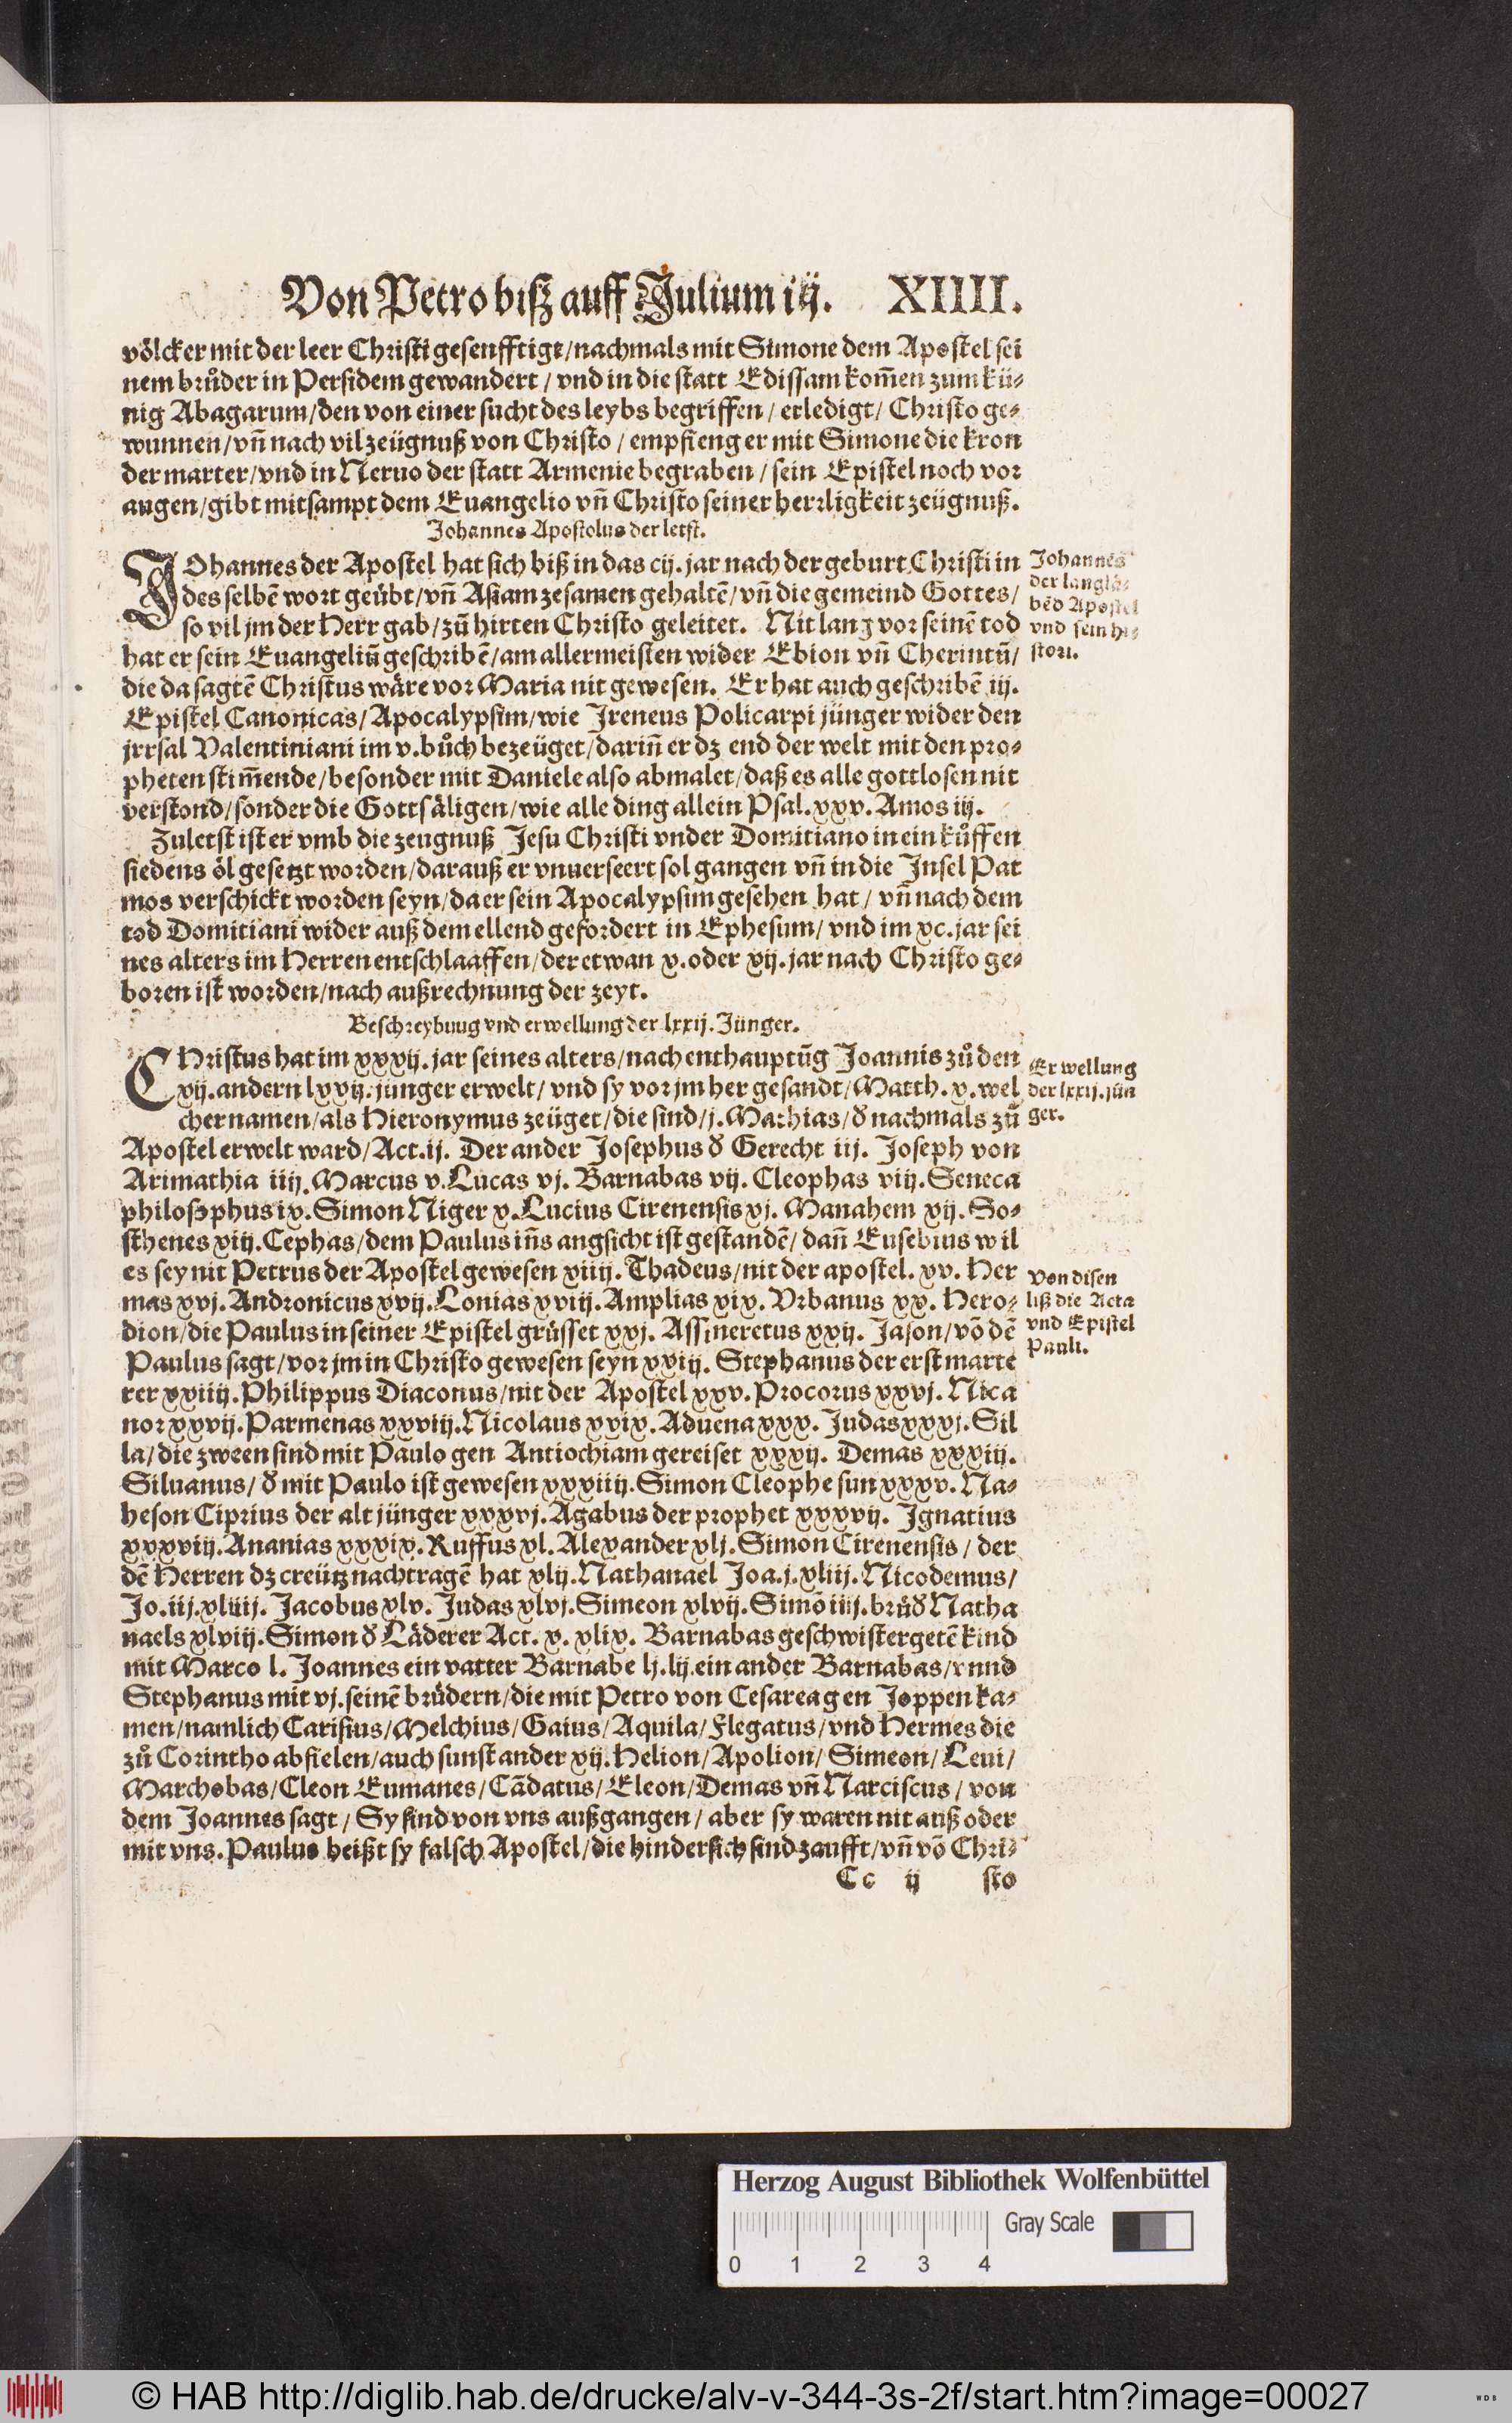 Von Petro biß auff Julium iij. XIIII.
völcker mit der leer Christi gesenfftigt/nachmals mit Simone dem Apostel sei
nem brůder in Persidem gewandert / vnd in die statt Edissam kom̃en zum kü-
nig Abagarum/den von einer sucht des leybs begriffen / erledigt/ Christo ge-
wunnen/vñ nach vil zeügnuß von Christo / empfieng er mit Simone die kron
der marter/vnd in Neruo der statt Armenie begraben / sein Epistel noch vor
augen/gibt mitsampt dem Euangelio vñ Christo seiner herrligkeit zeügnuß.
Johannes Apostolus der letst.
JOhannes der Apostel hat sich biß in das cij. jar nach der geburt Christi in
des selbẽ wort geübt/vñ Asiam zesamen gehaltẽ/vñ die gemeind Gottes/
so vil jm der Herr gab/zů hirten Christo geleitet. Nit lang vor seinẽ tod
hat er sein Euangeliũ geschribẽ/am allermeisten wider Ebion vñ Cherintũ/
die da sagtẽ Christus wäre vor Maria nit gewesen. Er hat auch geschribẽ iij.
Epistel Canonicas/Apocalypsim/wie Jreneus Policarpi jünger wider den
jrrsal Valentiniani im v.bůch bezeüget/dariñ er dz end der welt mit den pro-
pheten stim̃ende/besonder mit Daniele also abmalet/daß es alle gottlosen nit
verstond/sonder die Gottsäligen/wie alle ding allein Psal.xxv. Amos iij.
Zuletst ist er vmb die zeugnuß Jesu Christi vnder Domitiano in ein kůffen
siedens öl gesetzt worden/darauß er vnuerseert sol gangen vñ in die Jnsel Pat
mos verschickt worden seyn/da er sein Apocalypsim gesehen hat / vñ nach dem
tod Domitiani wider auß dem ellend gefordert in Ephesum/ vnd im xc.jar sei
nes alters im Herren entschlaaffen/der etwan x.oder xij.jar nach Christo ge-
boren ist worden/nach außrechnung der zeyt.
Johannes
der langlä-
bẽd Apostel
vnd sein hi-
stori.
Beschreybung vnd erwellung der lxxij. Jünger.
CHristus hat im xxxij. jar seines alters/nach enthauptũg Joannis zů den
xij.andern lxxij.jünger erwelt/ vnd sy vor jm her gesandt/Matth.x.wel
cher namen/als Hieronymus zeüget/die sind/j.Mathias/ð nachmals zů
Apostel erwelt ward/Act.ij. Der ander Josephus ð Gerecht iij. Joseph von
Arimathia iiij.Marcus v.Lucas vj. Barnabas vij. Cleophas viij.Seneca
philosophus ix.Simon Niger x.Lucius Cirenensis xj. Manahem xij. So-
sthenes xiij.Cephas/dem Paulus iñs angsicht ist gestandẽ/ dañ Eusebius wil
es sey nit Petrus der Apostel gewesen xiiij. Thadeus/nit der apostel. xv. Her
mas xvj.Andronicus xvij.Lonias xviij.Amplias xix. Vrbanus xx. Hero-
dion/die Paulus in seiner Epistel grüsset xxj. Assineretus xxij. Jason/võ dẽ
Paulus sagt/vor jm in Christo gewesen seyn xxiij. Stephanus der erst marte
rer xxiiij.Philippus Diaconus/nit der Apostel xxv.Procorus xxvj.Nica
nor xxvij.Parmenas xxviij.Nicolaus xxix.Aduena xxx. Judas xxxj.Sil
la/die zween sind mit Paulo gen Antiochiam gereiset xxxij. Demas xxxiij.
Siluanus/ð mit Paulo ist gewesen xxxiiij.Simon Cleophe sun xxxv.Na-
heson Ciprius der alt jünger xxxvj.Agabus der prophet xxxvij. Jgnatius
xxxviij.Ananias xxxix.Ruffus xl.Alexander xlj.Simon Cirenensis / der
dẽ Herren dz creütz nachtragẽ hat xlij.Nathanael Joa.j.xliij.Nicodemus/
Jo.iij.xliiij. Jacobus xlv. Judas xlvj.Simeon xlvij.Simõ iiij.brůð Natha
naels xlviij.Simon ð Läderer Act. x. xlix. Barnabas geschwistergetẽ kind
mit Marco l. Joannes ein vatter Barnabe lj.lij.ein ander Barnabas/vnnd
Stephanus mit vj.seinẽ brüdern/die mit Petro von Cesarea gen Joppen ka-
men/namlich Carisius/Melchius/Gaius/Aquila/Flegatus/vnd Hermes die
zů Corintho abfielen/auch sunst ander xij.Helion/Apolion/Simeon/Leui/
Marchobas/Cleon Eumanes/Cãdatus/Eleon/Demas vñ Narciscus / von
dem Joannes sagt / Sy sind von vns außgangen / aber sy waren nit auß oder
mit vns.Paulus heißt sy falsch Apostel/die hindersich sind zaufft/vñ võ Chri-
Cc ij sto
Erwellung
der lxxij.jün
ger.
Von disen
liß die Acta
vnd Epistel
Pauli.
Herzog August Bibliothek Wolfenbüttel
Gray Scale
0 1 2 3 4
© HAB http://diglib.hab.de/drucke/alv-v-344-3s-2f/start.htm?image=00027
WDB